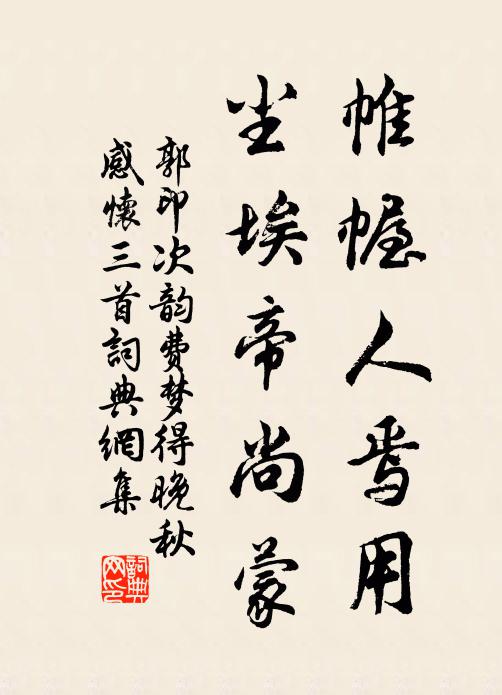 帷幄人焉用
尘埃帝尚蒙
郭印次韵费梦得晚秋
感懷三首詞典網集
詞典网印